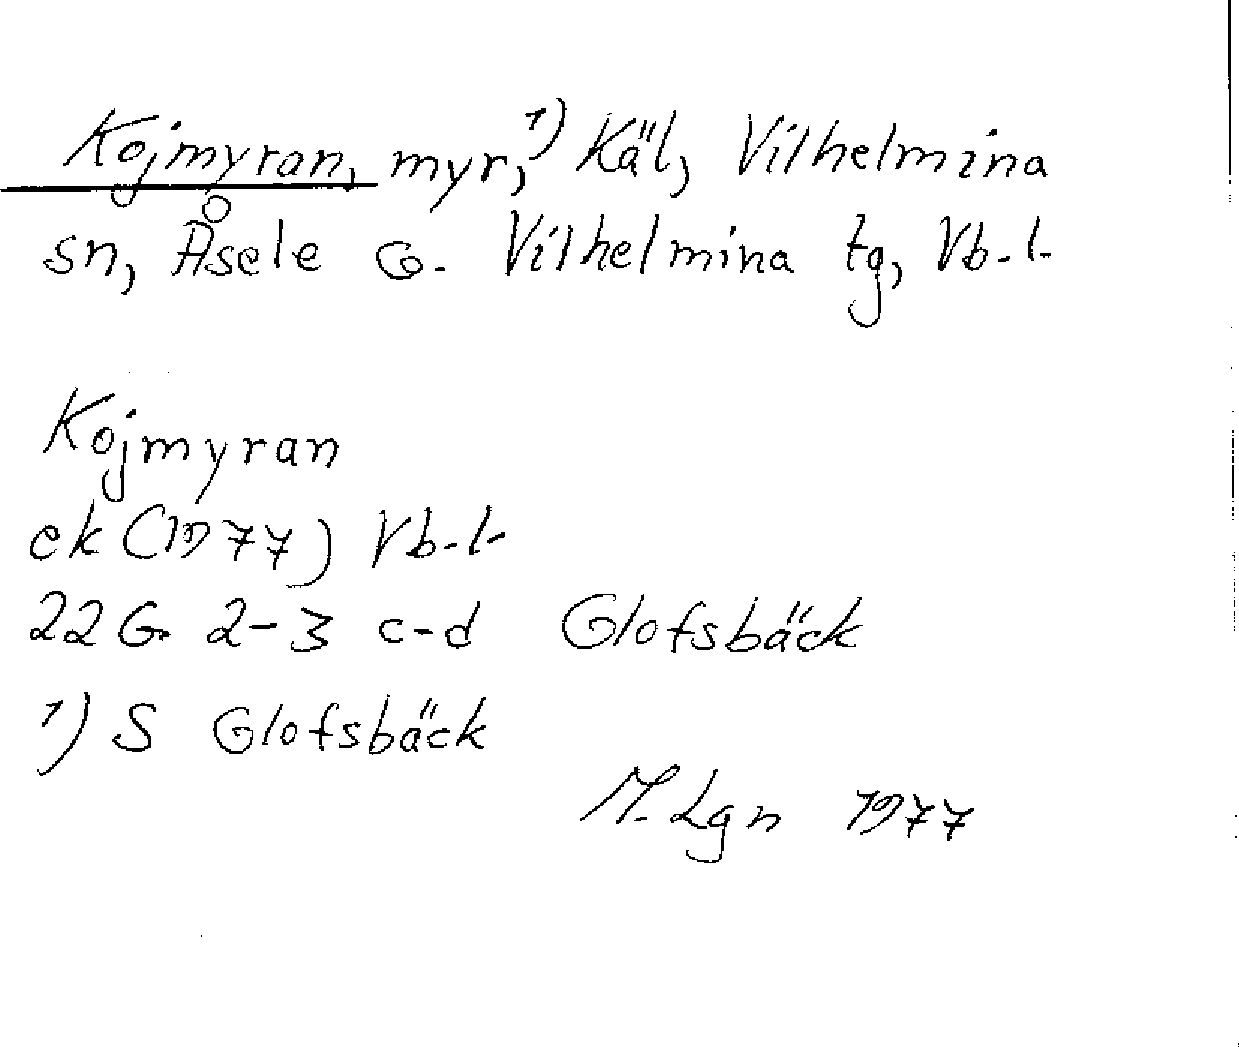 Kojmyran, myr,¹⁾ Käl, Vilhelmina
sn, Åsele o. Vilhelmina tg, Vb.l.
Kojmyran
ek (1977) Vb.l.
22 G. 2-3 c-d Glofsbäck
1) S Glofsbäck
M. Lgn 1977